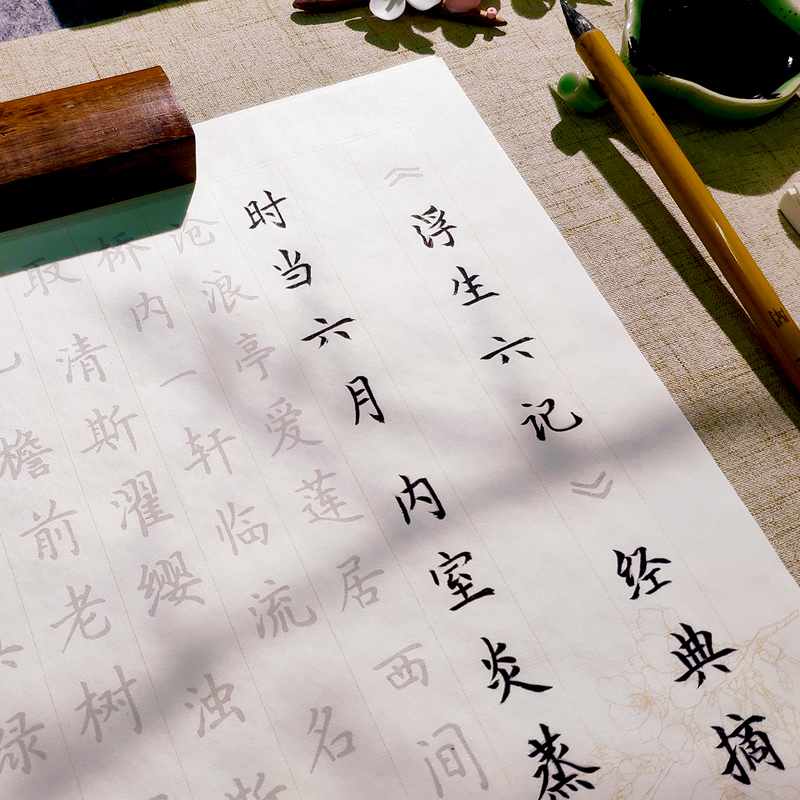 《浮生六记》经典摘
时当六月 内室炎蒸
沧浪亭爱莲居西间
桥内一轩临流 名
取清斯濯缨 浊斯
檐前老树
绿